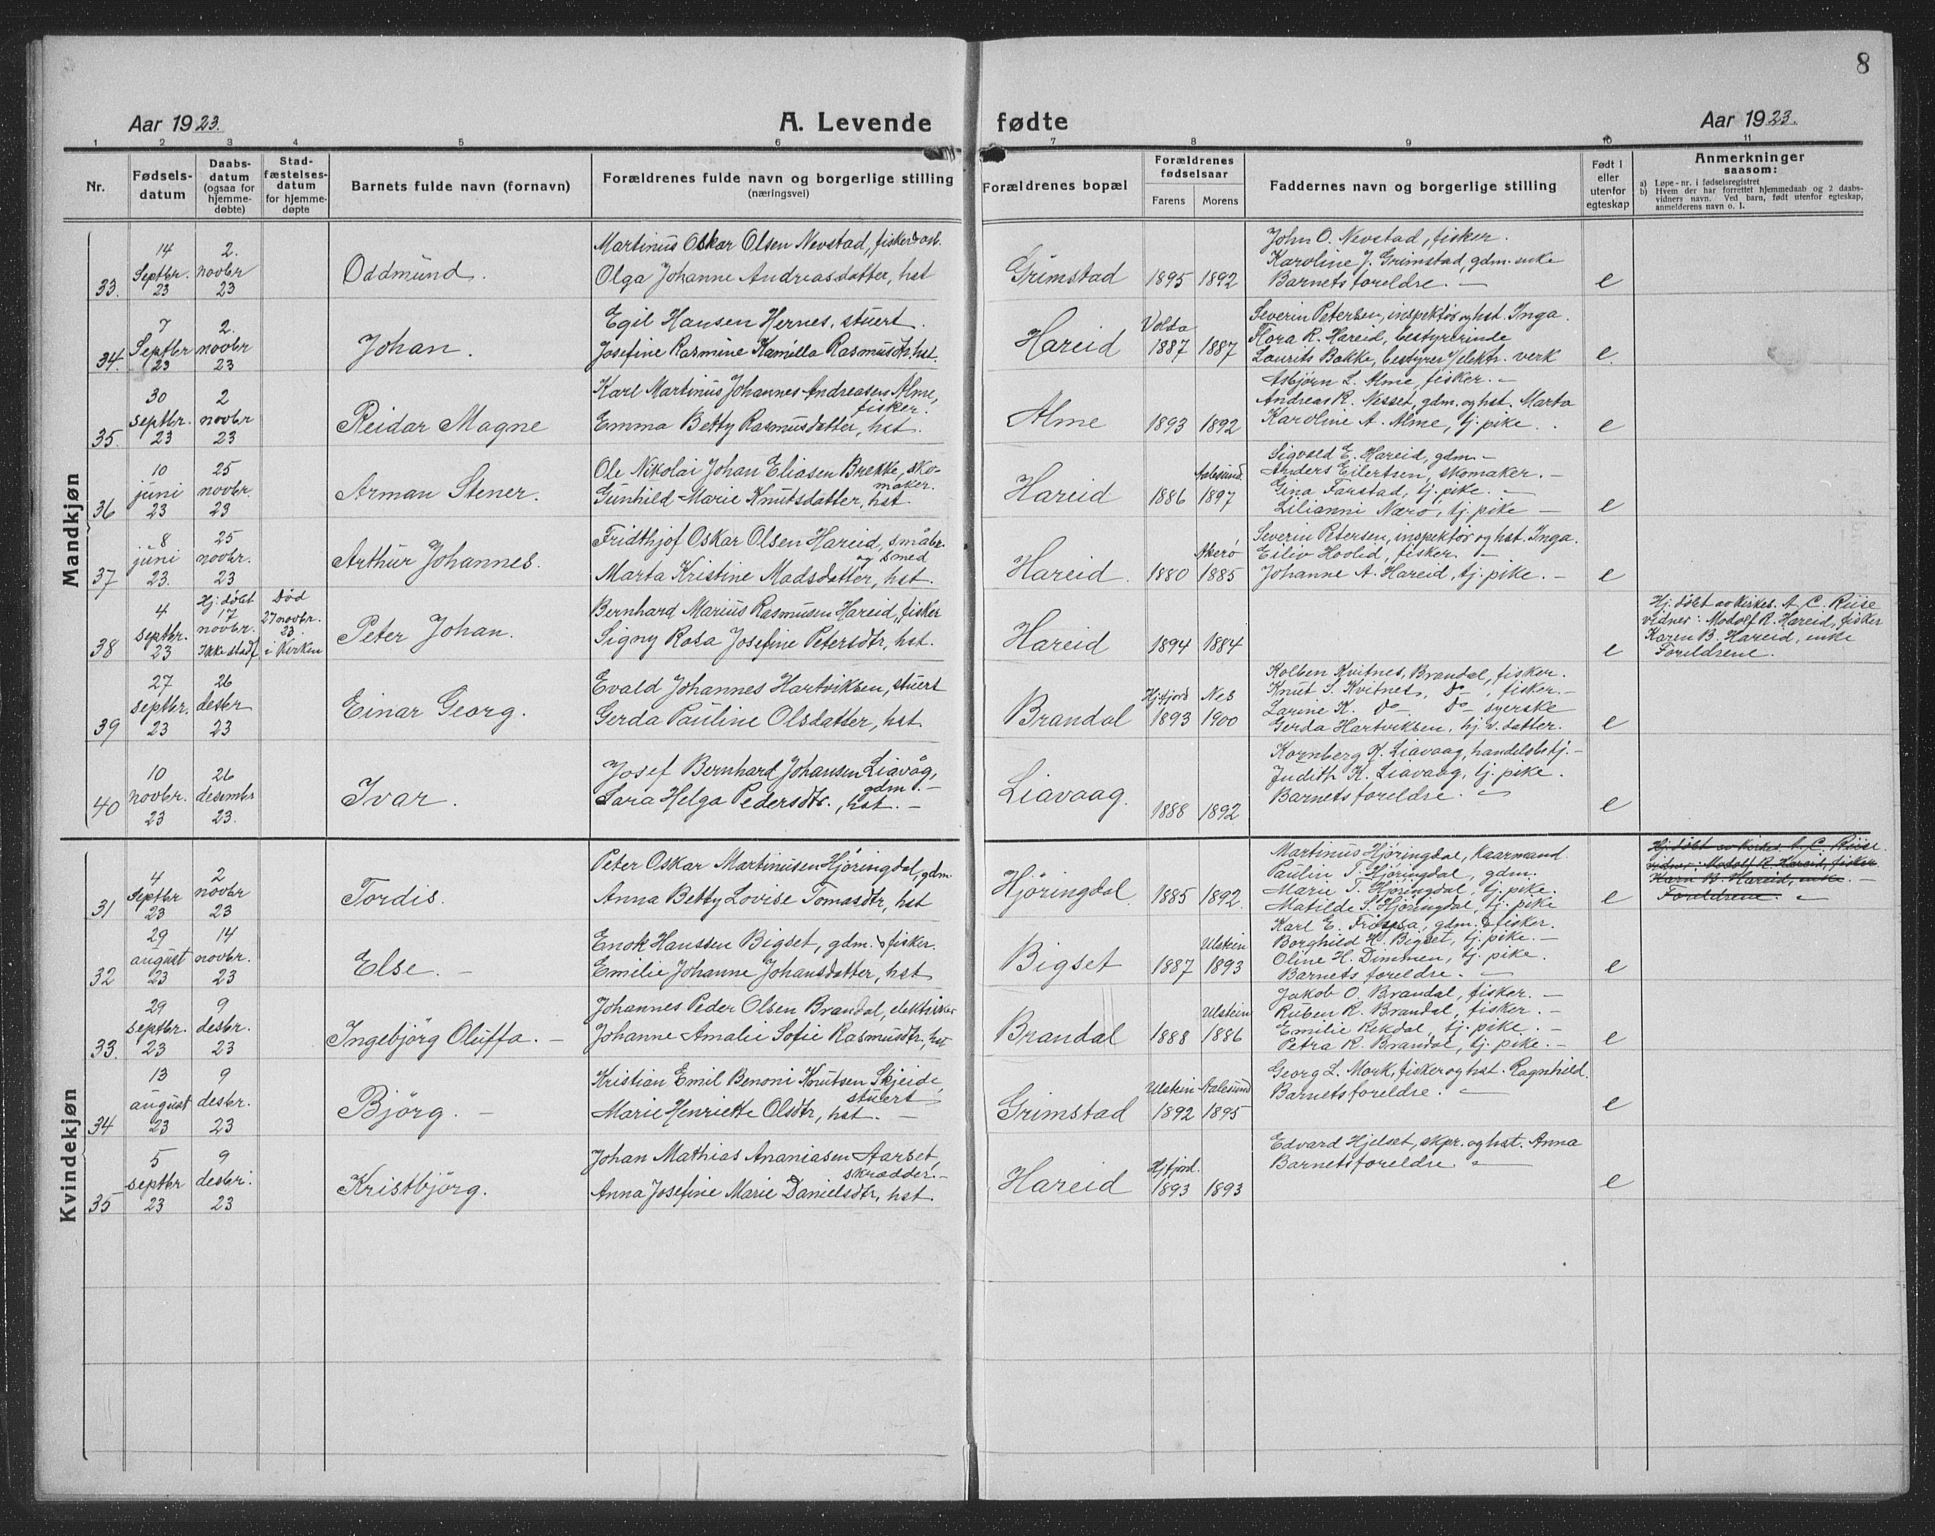 8
Aar 1923.
A. Levende fødte
Aar 1923.
1 2 3 4 5 6 7 8 9 10 11
Nr.
Fødsels-
datum
Daabs-
datum
(ogsaa for
hjemme-
døbte)
Stad-
fæstelses-
datum
for hjemme-
døpte
Barnets fulde navn (fornavn)
Forældrenes fulde navn og borgerlige stilling
(næringsvei)
Forældrenes bopæl
Forældrenes
fødselsaar
Farens Morens
Faddernes navn og borgerlige stilling
Født i
eller
utenfor
egteskap
Anmerkninger
saasom:
a) Løpe-nr. i fødselsregistret
b) Hvem der har forrettet hjemmedaab og 2 daabs-
vidners navn. Ved barn, født utenfor egteskap,
anmelderens navn o. l.
Mandkjøn
33. 14 Septbr. 23
2. novbr 23
Oddmund.
Martinus Oskar Olsen Nevstad, fisker
Olga Johanne Andreasdatter, hst
Grimstad 1895 1892
John O. Nevstad, fisker.
Karoline J. Grimstad, gdm. enke
Barnets foreldre. —
e
34. 7 Septbr 23
2. novbr 23
Johan.
Egil Hansen Hernes, stuert.
Josefine Rasmine Kamilla Rasmusdtr. hst.
Hareid Volda 1887 1887
Severin Petersen, inspektør og hst. Inga.
Flora R. Hareid, bestyrerinde
Laurits Bakke, bestyrer v/elektr. verk
e.
35. 30 septbr. 23
2 novbr 23
Reidar Magne
Karl Martinus Johannes Andreasen Alme,
fisker.
Emma Betty Rasmusdatter, hst.
Alme 1893 1892
Asbjørn L. Alme, fisker. —
Andreas R. Nesset, gdm. og hst. Marta
Karoline A. Alme, tj. pike.
e
36 10 juni 23
25 novbr. 23
Arman Stener.
Ole Nikolai Johan Eliasen Brekke, sko-
maker.
Gunhild Marie Knutsdatter, hst.
Hareid 1886 Aalesund 1897
Sigvald E. Hareid, gdm. —
Anders Eilertsen, skomaker. —
Gina Farstad, tj. pike. —
Lilianni Nærø, tj. pike —
e
37 8 juni 23.
25 novbr. 23
Arthur Johannes.
Fridthjof Oskar Olsen Hareid, småbr.
og smed
Marta Kristine Madsdatter, hst.
Hareid. 1880 Akerø 1885
Severin Petersen, inspektør og hst. Inga.
Eiliv Hovlid, fisker.
Johanne A. Hareid, tj. pike. —
e
38 4 septbr. 23
Hj. døbt 17 novbr. Ikke stadf.
Død 27 novbr. 23. i Kirken
Peter Johan.
Bernhard Marius Rasmusen Hareid, fisker
Signy Rosa Josefine Petersdtr, hst.
Hareid 1894 1884
e
Hj. døbt av kirkes. A. C. Riise
vidner: Modolf R. Hareid, fisker
Karen B. Hareid, enke
Foreldrene.
39 27 septbr. 23
26 desbr 23
Einar Georg.
Evald Johannes Hartviksen, stuert
Gerda Pauline Olsdatter, hst.
Brandal Hj.fjord 1893 Nes 1900
Kolben Kvitnes, Brandal, fisker.
Knut S. Kvitnes, do — , fisker. —
Larine K. do — do — syerske
Gerda Hartviksen, hj. v. datter.
e
40 10 novbr. 23
26 desembr 23.
Ivar.
Josef Bernhard Johansen Liavåg,
gdm. —
Sara Helga Pedersdtr., hst. —
Liavaag. 1888 1892
Kornberg Liavaag, handelsbetj. —
Judith K. Liavaag, tj. pike.
Barnets foreldre.
e
Kvindekjøn
31 4 Septbr 23
2 novbr 23
Tordis.
Peter Oskar Martinusen Hjøringdal, gdm.
Anna Betty Lovise Tomasdtr, hst
Hjøringdal. 1885 1892.
Martinus Hjøringdal, kaarmand.
Paulin T. Hjøringdal, gdm.
Marie S. Hjøringdal, tj. pike.
Matilde S. Hjøringdal, tj. pike
e
Hj. døbt av kirkes. A. C. Riise
vidner: Modolf R. Hareid, fisker
Karn B. Hareid, enke. —
Foreldrene.
32 29 august 23
14 novbr. 23
Else. —
Enok Hanssen Bigset, gdm. & fisker.
Emilie Johanne Johansdatter, hst
Bigset 1887 Ulstein 1893
Karl E. gdm. & fisker.
Borghild H. Bigset, tj. pike. —
Oline H. Dimmen, tj. pike.
Barnets foreldre.
e
33. 29 septbr. 23
9 desbr. 23
Ingebjörg Oluffa. —
Johannes Peder Olsen Brandal, elektriker
Johanne Amalie Sofie Rasmusdtr, hst
Brandal 1888 Ulstein 1886
Jakob O. Brandal, fisker. —
Ruben R. Brandal, fisker. —
Emilie Rekdal, tj. pike. —
Petra R. Brandal, tj. pike. —
e
34 13 august 23
9 desbr. 23
Bjørg. —
Kristian Emil Benoni Knutsen Skjeide,
stuert
Marie Henriette Olsdtr, hst. —
Grimstad Ulstein 1892 Aalesund 1895
Georg L. Mork, fisker og hst. Ragnhild.
Barnets foreldre.
e
35 5 septbr 23
9 desbr. 23
Kristbjörg.
Johan Mathias Ananiasen Aarset,
skrædder. —
Anna Josefine Marie Danielsdtr, hst.
Hareid Hj.fjord. 1893 1893
Edvard Hjelset, skpr. og hst. Anna
Barnets foreldre.
e